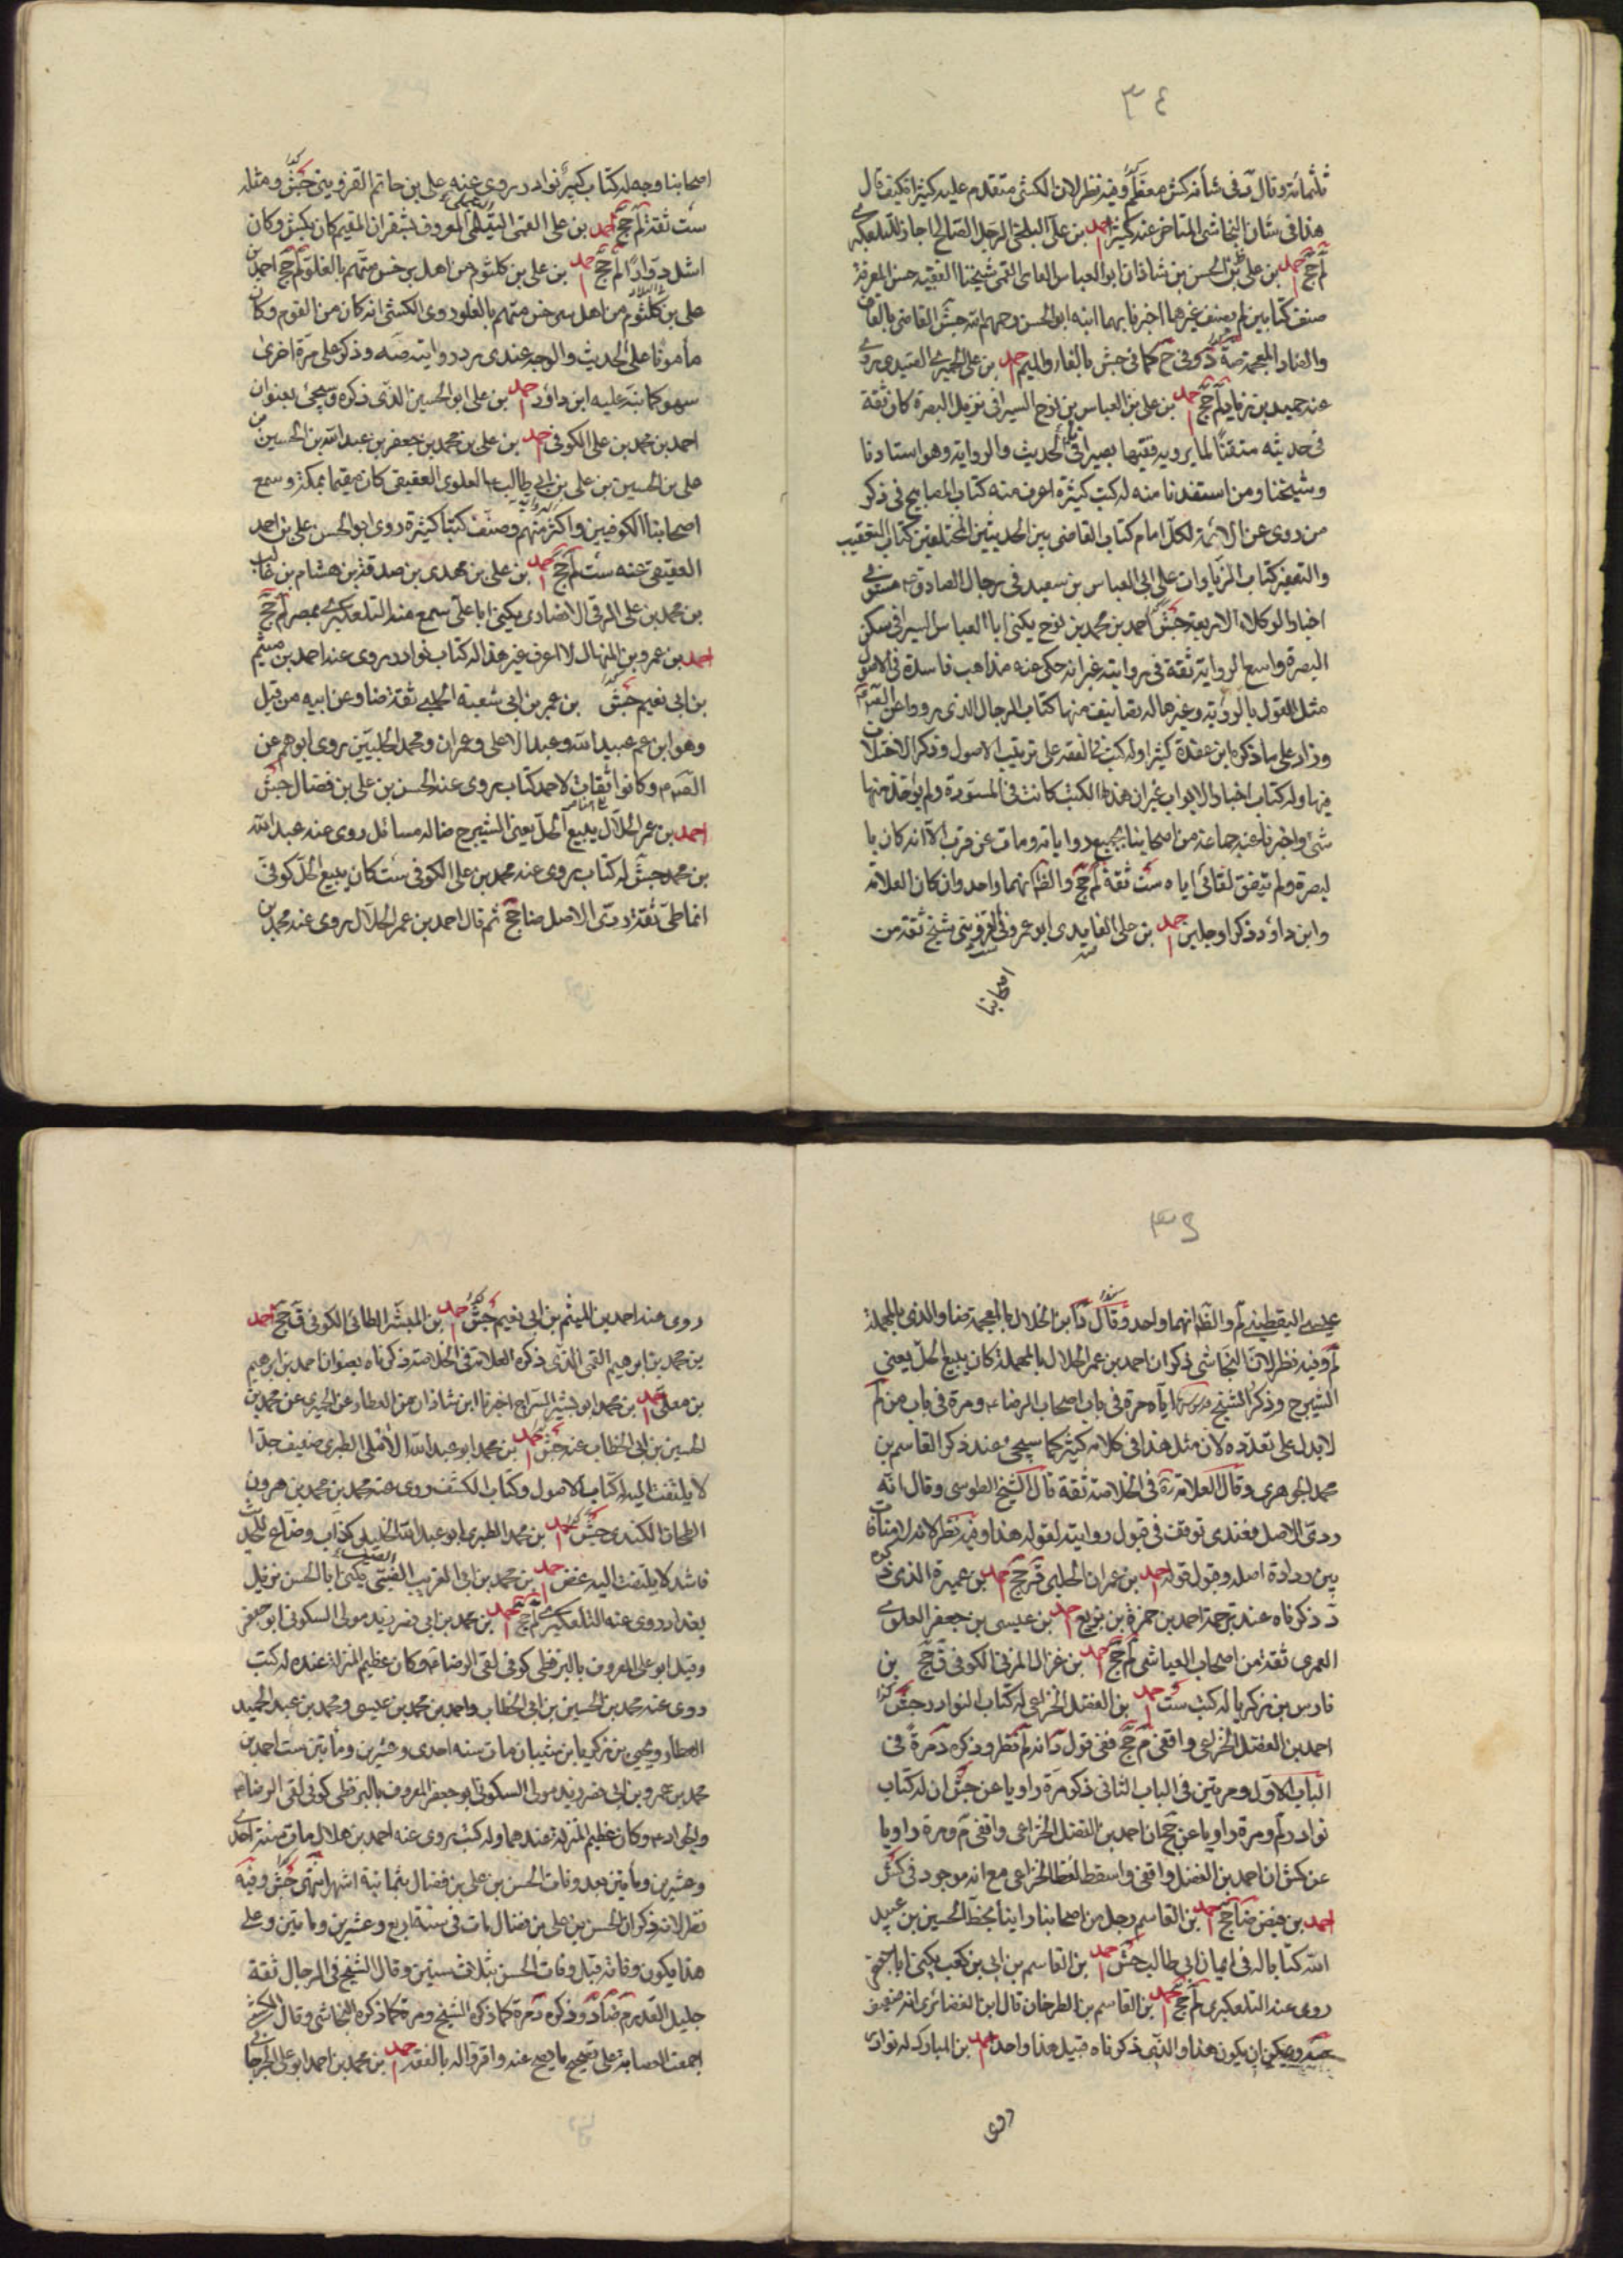 ٣٤
ثلثمائة وقال د في شأنه كش معظم وفيه نظر لان الكشي متقدم عليه كثيرا فكيف قال
هذا في شان النجاشي المتاخر عنه كثيرا احمد بن علي البلخي الرجل الصالح اجاز للتلعكبري
لم جخ احمد بن علي بن الحسن بن شاذان ابو العباس الفامي القمي شيخنا الفقيه حسن المعرفة
صنف كتابين لم يصنف غيرهما اخبرنا بهما ابنه ابو الحسن رحمهم الله جش القاضي بالقاف
والضاد المعجمة صه د وفي ح كما في جش بالفاء والميم احمد بن علي الحميري الصيدي روى
عنه حميد بن زياد لم جخ احمد بن علي بن العباس بن نوح السيرافي نزيل البصرة كان ثقة
في حديثه متقنا لما يرويه فقيها بصيرا في الحديث والرواية وهو استادنا
وشيخنا ومن استفدنا منه له كتب كثيرة اعرف منها كتاب المصابيح في ذكر
من روى عن الائمة لكل امام كتاب القاضي بين الحديثين المختلفين كتاب التعقيب
والتعفير كتاب الزيادات على ابي العباس بن سعيد في رجال الصادق مستوفى
اخبار الوكلاء الاربعة جش احمد بن محمد بن نوح يكنى ابا العباس السيرافي سكن
البصرة واسع الرواية ثقة في روايته غير انه حكى عنه مذاهب فاسدة في الاصول
مثل القول بالرؤية وغيرها له تصانيف منها كتاب الرجال الذين رووا عن الصم
وزاد على ما ذكره ابن عقدة كثيرا وله كتب في الفقه على ترتيب الاصول وذكر الاختلاف
فيها وله كتاب اخبار الابواب غير ان هذه الكتب كانت في المسودة ولم يؤخذ منها
شئ واخبرنا عنه جماعة من اصحابنا بجميع رواياته ومات عن قرب الا انه كان با
لبصرة ولم يتفق لقائي اياه ست ثقة لم جخ والظ انهما واحد وان كان العلامة
وابن داود ذكرا رجلين احمد بن علي الفايدي ابو عمرو القزويني شيخ ثقة من
اصحابنا
اصحابنا وجه له كتاب كبير نوادر روى عنه علي بن حاتم القزويني جش ومثله
ست ثقة لم جخ احمد بن علي القمي المعروف بشقران المقيم كان بكش وكان
اشل دوارا لم جخ احمد بن علي بن كلثوم من اهل سرخس متهم بالغلو لم جخ احمد بن
علي بن كلثوم من اهل سرخس متهم بالغلو روى الكشي انه كان من القوم وكان
مأمونا على الحديث والوجه عندي رد روايته صه وذكر علي مرة اخرى
سهو كما نبه عليه ابن داود احمد بن علي ابو الحسين الذي ذكره وسيجئ بعنوان
احمد بن محمد بن علي الكوفي احمد بن علي بن محمد بن جعفر بن عبد الله بن الحسين بن
علي بن الحسين بن علي بن ابي طالب العلوي العقيقي كان مقيما بمكة وسمع
اصحابنا الكوفيين واكثر منهم وصنف كتبا كثيرة روى ابو الحسن علي بن احمد
العقيقي عنه ست لم جخ احمد بن علي بن مهدي بن صدقة بن هشام بن غالب
بن محمد بن علي الرقي الانصاري يكنى ابا علي سمع منه التلعكبري بمصر لم جخ
احمد بن عمرو بن المنهال لا اعرف غير هذا له كتاب نوادر روى عنه احمد بن ميثم
بن ابي نعيم جش بن عمر بن ابي شعبة الحلبي ثقة ضا وعن ابيه من قبل
وهو ابن عم عبيد الله وعبد الاعلى وعمران ومحمد الحلبيين روى ابوهم عن
الصم وكانوا ثقات لاحمد كتاب روى عنه الحسن بن علي بن فضال جش
احمد بن عمر الحلال يبيع الحل يعني الشيرج ضا له مسائل روى عنه عبد الله
بن محمد جش له كتاب روى عنه محمد بن علي الكوفي ست كان يبيع الحل كوفي
انماطي ثقة ردي الاصل ضا جخ ثم قال احمد بن عمر الحلال روى عنه محمد بن
٣٥
عيسى اليقطيني لم والظ انهما واحد وقال د ابن الخلال بالمعجمة ضا والذي بالمهملة
لم وفيه نظر لان النجاشي ذكر ان احمد بن عمر الحلال بالمهملة كان يبيع الحل يعني
الشيرج وذكر الشيخ اياه مرة في باب اصحاب الرضا ومرة في باب من لم
لا يدل على تعدده لان مثل هذا في كلامه كثير كما سيجئ عند ذكر القاسم بن
محمد الجوهري وقال العلامة في الخلاصة ثقة قال الشيخ الطوسي وقال انه
ردي الاصل فعندي توقف في قبول روايته لقوله هذا وفيه نظر لانه لا منافاة
بين رداءة اصله وقبول قوله احمد بن عمران الحلبي قر جخ احمد بن عميرة الذي ذكره
د ذكرناه عند ترجمة احمد بن حمزة بن بزيع احمد بن عيسى بن جعفر العلوي
العمري ثقة من اصحاب العياشي لم جخ احمد بن غزال المزني الكوفي ق جخ بن
فارس بن زكريا له كتب ست احمد بن الفضل الخزاعي له كتاب النوادر جش
احمد بن الفضل الخزاعي واقفي م جخ ففي قول د انه لم نظر وذكره د مرة في
الباب الاول ومرتين في الباب الثاني ذكر مرة راويا عن جش ان له كتاب
نوادر لم ومرة راويا عن جخ ان احمد بن الفضل الخزاعي واقفي م ومرة راويا
عن كش ان احمد بن الفضل واقفي واسقط لفظ الخزاعي مع انه موجود في كش
احمد بن فيض ضا جخ احمد بن القاسم رجل من اصحابنا راينا بخط الحسين بن عبيد
الله كتابا له في ايمان ابي طالب جش احمد بن القاسم بن ابي بن كعب يكنى ابا جعفر
روى عنه التلعكبري لم جخ احمد بن القاسم بن الطرخان قال ابن الغضائري انه ضعيف
صه د ويمكن ان يكون هذا والذي ذكرناه قبيل هذا واحد احمد بن المبارك له نوادر
روى
روى عنه احمد بن الميثم بن ابي نعيم جش احمد بن المبشر الطائي الكوفي ق جخ احمد
بن محمد بن ابراهيم القمي الذي ذكره العلامة في الخلاصة ذكرناه بعنوان احمد بن ابرهيم
بن معلى احمد بن محمد ابو بشر السراج اخبرنا ابن شاذان عن العطار عن الحميري عن محمد بن
الحسين بن ابي الخطاب عنه جش احمد بن محمد ابو عبد الله الآملي الطبري ضعيف جدا
لا يلتفت اليه له كتاب الاصول وكتاب الكشف روى عنه محمد بن محمد بن هرون
الطحان الكندي جش احمد بن محمد الطبري ابو عبد الله الخليلي كذاب وضاع للحديث
فاسد لا يلتفت اليه غض احمد بن محمد بن ابي الغريب الضبي يكنى ابا الحسن نزيل
بغداد روى عنه التلعكبري لم جخ احمد بن محمد بن ابي نصر زيد مولى السكوني ابو جعفر
وقيل ابو علي المعروف بالبزنطي كوفي لقي الرضا وكان عظيم المنزلة عنده له كتب
روى عنه محمد بن الحسين بن ابي الخطاب واحمد بن محمد بن عيسى ومحمد بن عبد الحميد
العطار ويحيى بن زكريا بن شيبان مات سنة احدى وعشرين ومأتين ست احمد بن
محمد بن عمرو بن ابي نصر زيد مولى السكوني ابو جعفر المعروف بالبزنطي كوفي لقي الرضا
والجواد وكان عظيم المنزلة عندهما وله كتب روى عنه احمد بن هلال مات سنة احدى
وعشرين ومأتين بعد وفات الحسن بن علي بن فضال بثمانية اشهر انتهى جش وفيه
نظر لانه ذكر ان الحسن بن علي بن فضال مات في سنة اربع وعشرين ومأتين وعلى
هذا يكون وفاته قبل وفات الحسن بثلاث سنين وقال الشيخ في الرجال ثقة
جليل القدر م ضا د وذكره د مرة كما ذكره الشيخ ومرة كما ذكره النجاشي وقال الكشي
اجمعت العصابة على تصحيح ما يصح عنه واقروا له بالفقه احمد بن محمد بن احمد ابو علي الجرجاني